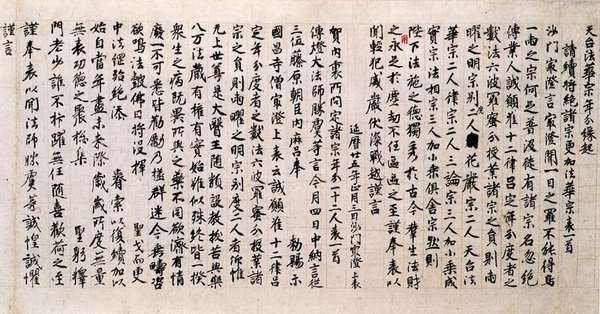 天台法華宗年分縁起
請續將絶諸宗更加法華宗表一首
沙門最澄言最澄聞一目之羅不能得鳥
一兩之宗何足普汲徒有諸宗名忽絶
傳業人誠願准十二律呂定年分度者之
數法六波羅蜜分授業諸宗之員則兩
曜之明宗別度二人花嚴宗二人天台法
華宗二人律宗二人三論宗三人加小乘成
實宗法相宗三人加小乘倶舍宗然則
陛下法施之徳獨秀於古今群生法財
之永足於塵劫不任區區之至謹奉表以
聞輕犯威嚴伏深戰越謹言
延暦廿五年正月三日沙門最澄上表
賀内裏所問定諸宗年分一十二人表一首
傳燈大法師勝虞等言今月四日中納言從
三位藤原朝臣内麻呂奉 勅賜示
國昌寺僧最澄上表云誠願准十二律呂
定年分度者之數法六波羅蜜分授業諸
宗之員則兩曜之明宗別度二人者仰惟
无上世尊是大醫王随類設教拔苦與樂
八万法藏有權有實始雖似殊終皆一揆
衆生之病既異所與之藥不同欲濟有情
廢一不可悉皆勸勵乃拯群迷今垂疇咨
欲鳴法鼓佛日將沒揮 聖戈而更
中法綱殆絶添 睿索以復續加以
始自當年盡未來際歳々所度無量
無表功徳之聚惣集 聖躬釋
門老少誰不抃躍無任随喜歡荷之至
謹奉表以聞法師勝虞等誠惶誠懼
謹言